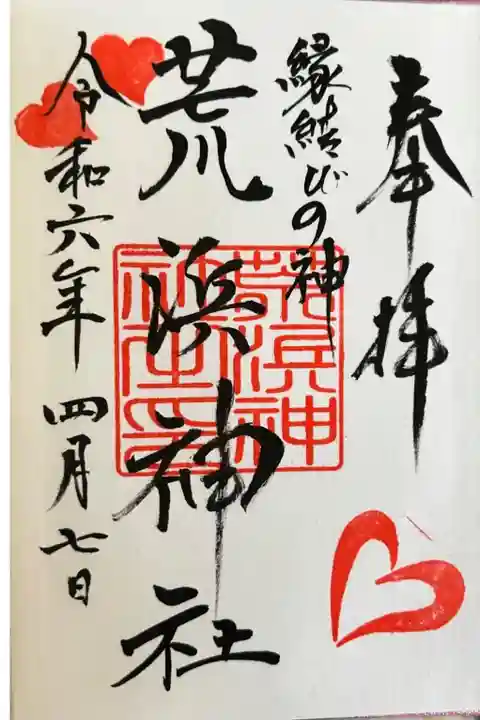 奉拝
縁結びの神
荒浜神社
荒浜神社印
令和六年 四月七日